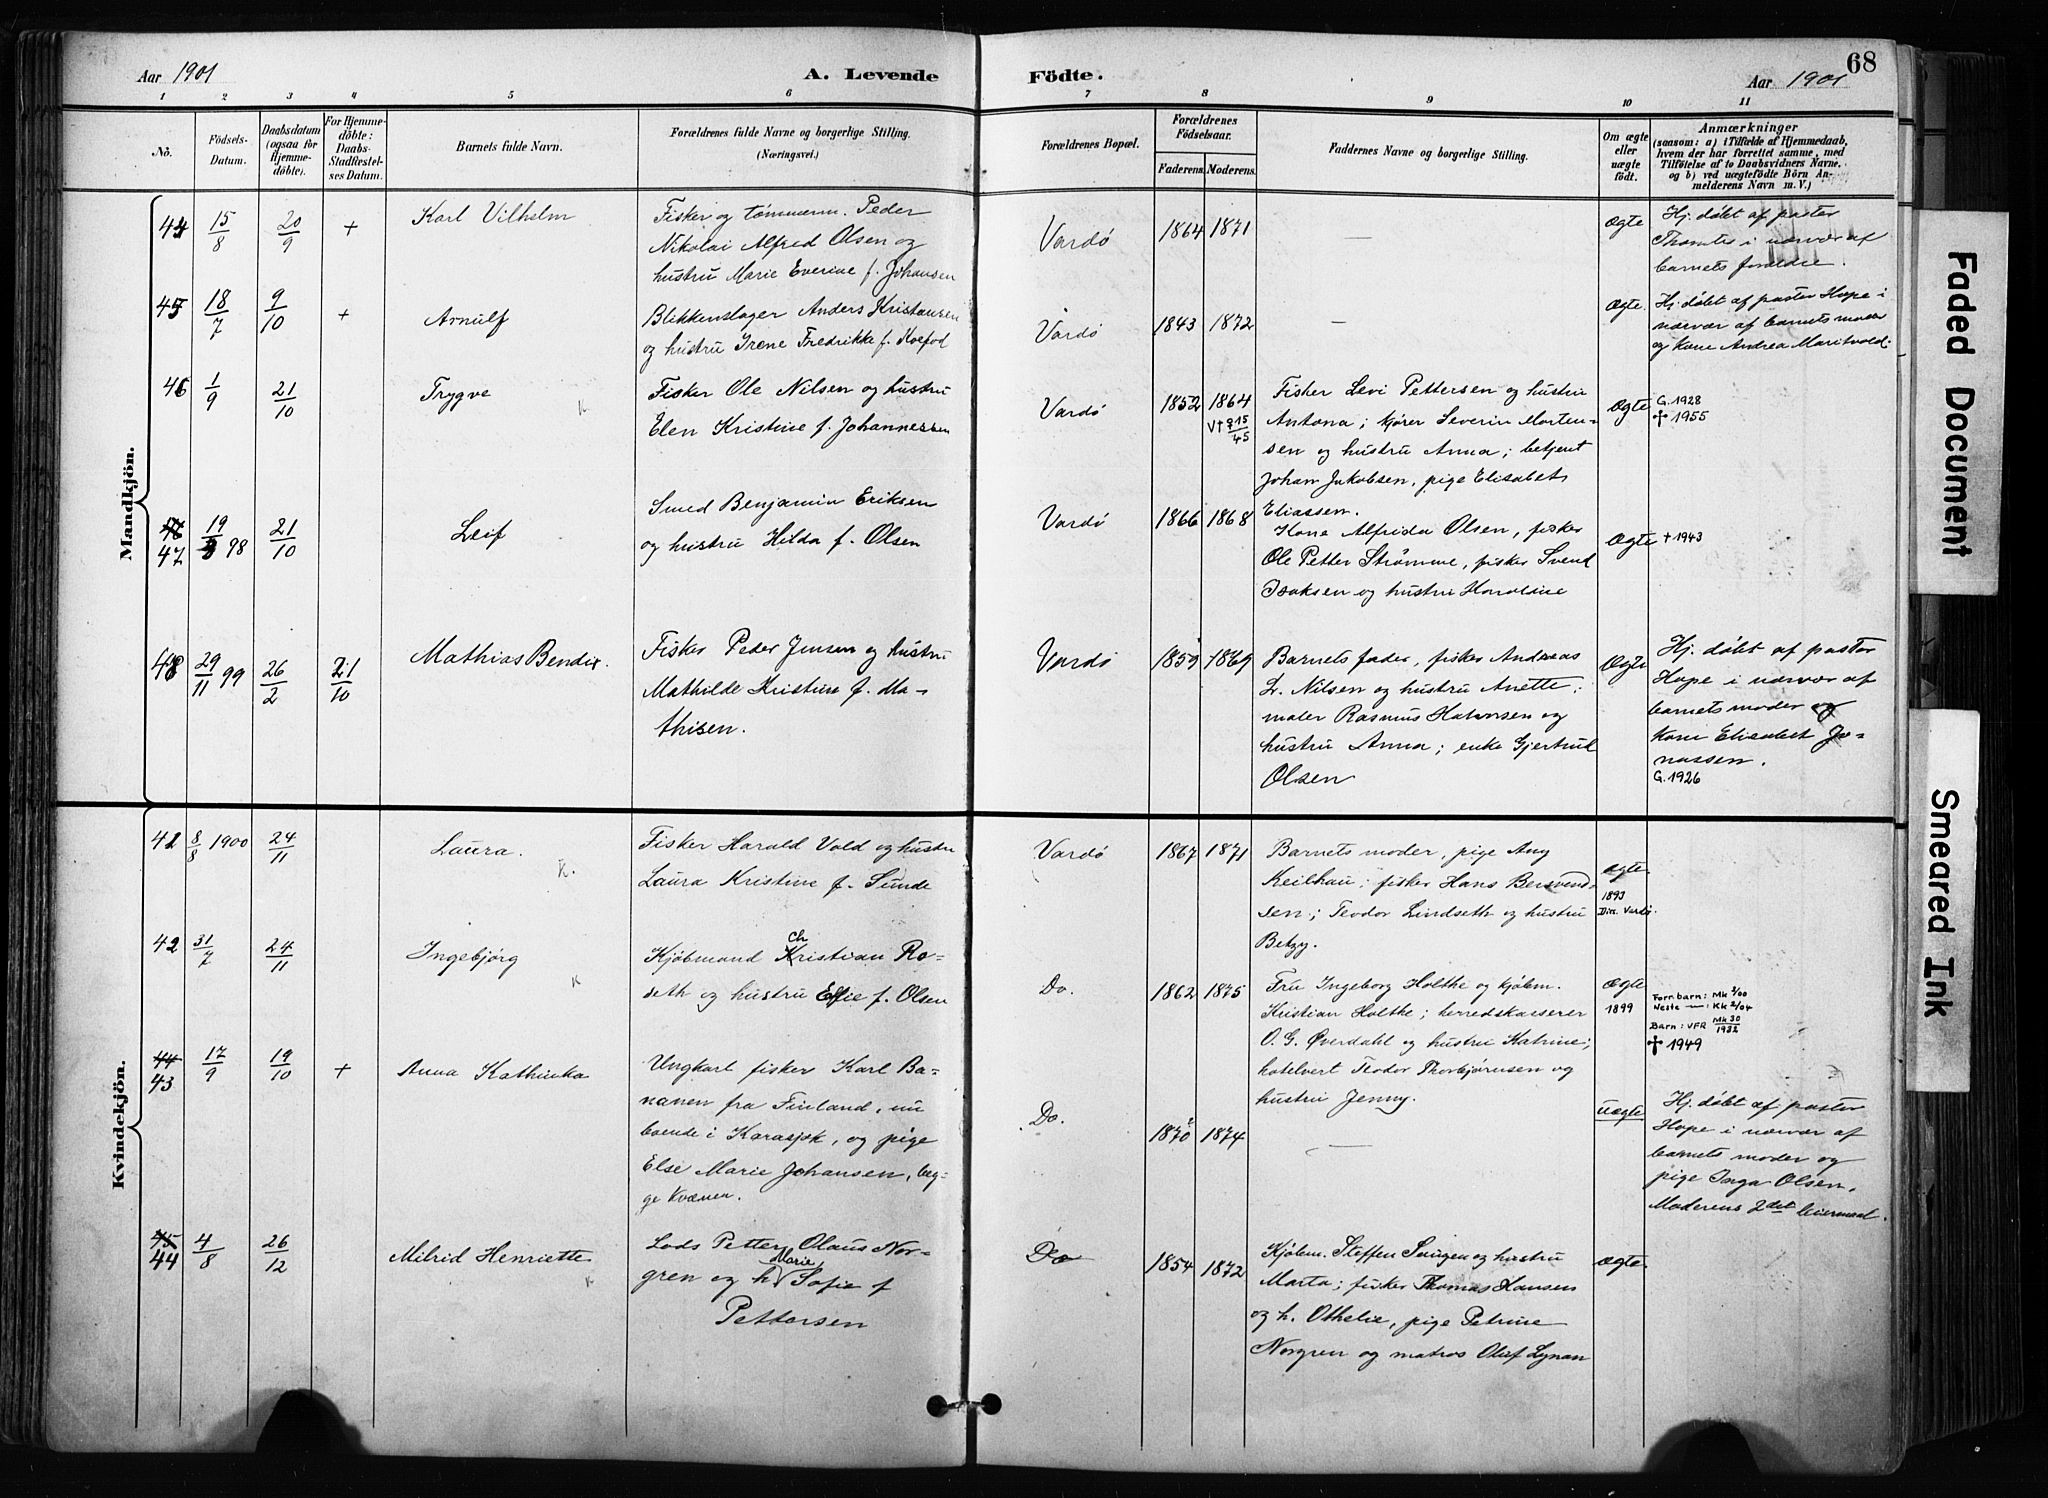 Aar 1901
A. Levende Födte.
68
Aar 1901
1 2 3 4 5 6 7 8 9 10 11
No.
Födsels-Datum.
Daabsdatum (ogsaa for Hjemme-döbte).
For Hjemme-döbte: Daabs-Stadfæstel-ses Datum.
Barnets fulde Navn.
Forældrenes fulde Navne og borgerlige Stilling.
(Næringsvei.)
Forældrenes Bopæl.
Forældrenes Födselsaar.
Faderens. Moderens.
Faddernes Navne og borgerlige Stilling.
Om ægte eller uægte födt.
Anmærkninger
(saasom: a) i Tilfælde af Hjemmedaab, hvem der har forrettet samme, med Tilföielse af to Daabsvidners Navne, og b) ved uægtefödte Börn An-melderens Navn m. V.)
Mandkjön.
44 15/8 20/9 + Karl Vilhelm
Fisker og tømmerm. Peder
Nikolai Alfred Olsen og
hustru Marie Everine f. Johansen
Vardø 1864 1871 — Ægte
Hj. døbt af pastor
i nærvær af
barnets forældre.
45 18/7 9/10 + Arnulf
Blikkenslager Anders Kristansen
og hustru Irene Fredrikke f. Koefod
Vardø 1843 1872 — Ægte.
Hj. døbt af pastor Hope i
nærvær af barnets moder
og kone Andrea Maritvold.
46 1/9 21/10 Trygve K
Fisker Ole Nilsen og hustru
Elen Kristine f. Johannessen
Vardø 1852 1864
V† 9 15/45
Fisker Levi Pettersen og hustru
Antona; kjører Severin Morten-
sen og hustru Anna; betjent
Johan Jakobsen, pige Elisabet
Eliassen.
Ægte
G. 1928
† 1955
47 19/3 98 21/10 Leif
Smed Benjamin Eriksen
og hustru Hilda f. Olsen
Vardø 1866 1868
Kone Alfrida Olsen, fisker
Ole Petter Strømme, fisker Svend
Isaksen og hustru Haraldine
Ægte † 1943
48 29/11 99 26/2 21/10 Mathias Bendix.
Fisker Peder Jensen og hustru
Mathilde Kristine f. Ma-
thisen.
Vardø 1859 1869
Barnets fader, fisker Andreas
L. Nilsen og hustru Anette;
maler Rasmus Halvorsen og
hustru Anna; enke Gjertrud
Olsen
Ægte
Hj. døbt af pastor
Hope i nærvær af
barnets moder og
kone Elisabet Jo-
nassen.
G. 1926
Kvindekjön.
41 8/8 1900 24/11 Laura. K.
Fisker Harald Vold og hustru
Laura Kristine f. Sunde
Vardø 1867 1871
Barnets moder, pige Any
Keilhau; fisker Hans Bersvend-
sen; Teodor Lindseth og hustru
Betzy.
Ægte
1893
Dim. Vardø.
42 31/7 24/11 Ingebjørg K
Kjøbmand Christian Ro-
seth og hustru Effie f. Olsen
Do. 1862 1875
Fru Ingeborg Holthe og kjøbm.
Kristian Holthe; herredskasserer
O. G. Øverdahl og hustru Katrine;
hotelvert Teodor Thorbjørnsen og
hustru Jenny.
Ægte
1899
Forn barn: Mk 3/00
Neste —: Kk 2/04
Barn: VFR Mk 30/1932
† 1949
44
43 17/9 19/10 + Anna Kathinka
Ungkarl fisker Karl Ba-
nanen fra Finland, nu
boende i Karasjok, og pige
Else Marie Johansen, beg-
ge kvæner.
Do. 1870? 1874 — uægte
Hj. døbt af pastor
Hope i nærvær af
barnets moder og
pige Inga Olsen.
Moderens 2det leiermaal.
45
44 4/8 26/12 Milrid Henriette K
Lods Petter Olaus Nor-
gren og h. Marie Sofie f
Pettersen
Do 1854 1872
Kjøbm. Steffen og hustru
Marta; fisker Thomas Hansen
og h. Othelie, pige Petrine
Norgren og matros Oluf Lynan
Ægte.
Faded Document
Smeared Ink